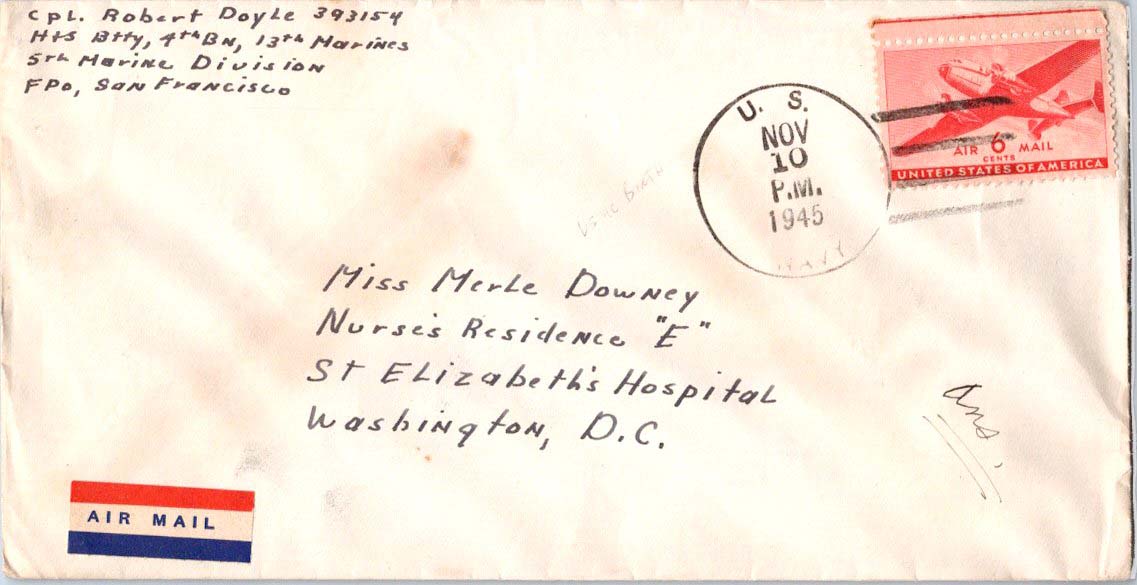 Cpl. Robert Doyle 393154
H+S Btty, 4th Bn, 13th Marines
5th Marine Division
FPO, San Francisco
U. S.
NOV
10
P.M.
1945
NAVY
AIR 6 MAIL
CENTS
UNITED STATES OF AMERICA
USMC BIRTH
Miss Merle Downey
Nurse's Residence "E"
St Elizabeth's Hospital
Washington, D.C.
Ans.
AIR MAIL